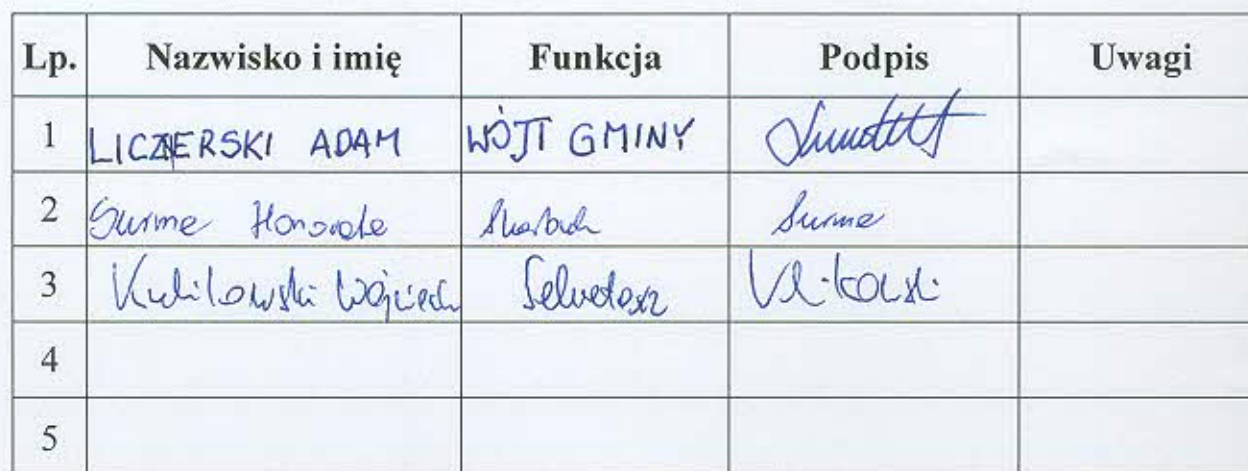 Lp. Nazwisko i imię Funkcja Podpis Uwagi
1 LICZNERSKI ADAM WÓJT GMINY
2 Surma Honorata Skarbnik Surma
3 Wojciech Sekretarz
4
5